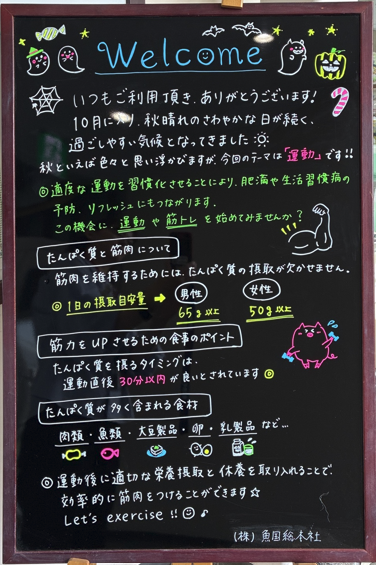 Welcome
いつもご利用頂き、ありがとうございます!
10月に入り、秋晴れのさわやかな日が続く、
過ごしやすい気候となってきました
秋といえば色々と思い浮かびますが、今回のテーマは「運動」です!!
◎適度な運動を習慣化させることにより、肥満や生活習慣病の
予防、リフレッシュにもつながります。
この機会に、運動や筋トレを始めてみませんか?
たんぱく質と筋肉について
筋肉を維持するためには、たんぱく質の摂取が欠かせません。
◎1日の摂取目安量 → 男性 女性
65g以上 50g以上
筋力をUPさせるための食事のポイント
たんぱく質を摂るタイミングは、
運動直後30分以内が良いとされています
たんぱく質が多く含まれる食材
肉類・魚類・大豆製品・卵・乳製品など…
◎運動後に適切な栄養摂取と休養を取り入れることで、
効率的に筋肉をつけることができます☆
Let's exercise!!☺♪
(株)魚国総本社